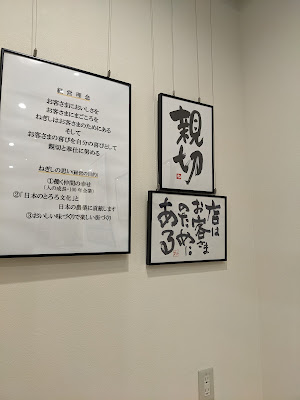 経営理念
お客さまにおいしさを
お客さまにまごころを
ねぎしはお客さまのためにある
そして
お客さまの喜びを自分の喜びとして
親切と奉仕に努める
ねぎしの思い(経営の目的)
①働く仲間の幸せ
(人の成長・100年企業)
②「日本のとろろ文化」と
日本の農業に貢献します
③おいしい味づくりで楽しい街づくり
親切
店は
お客さま
のため…
ある